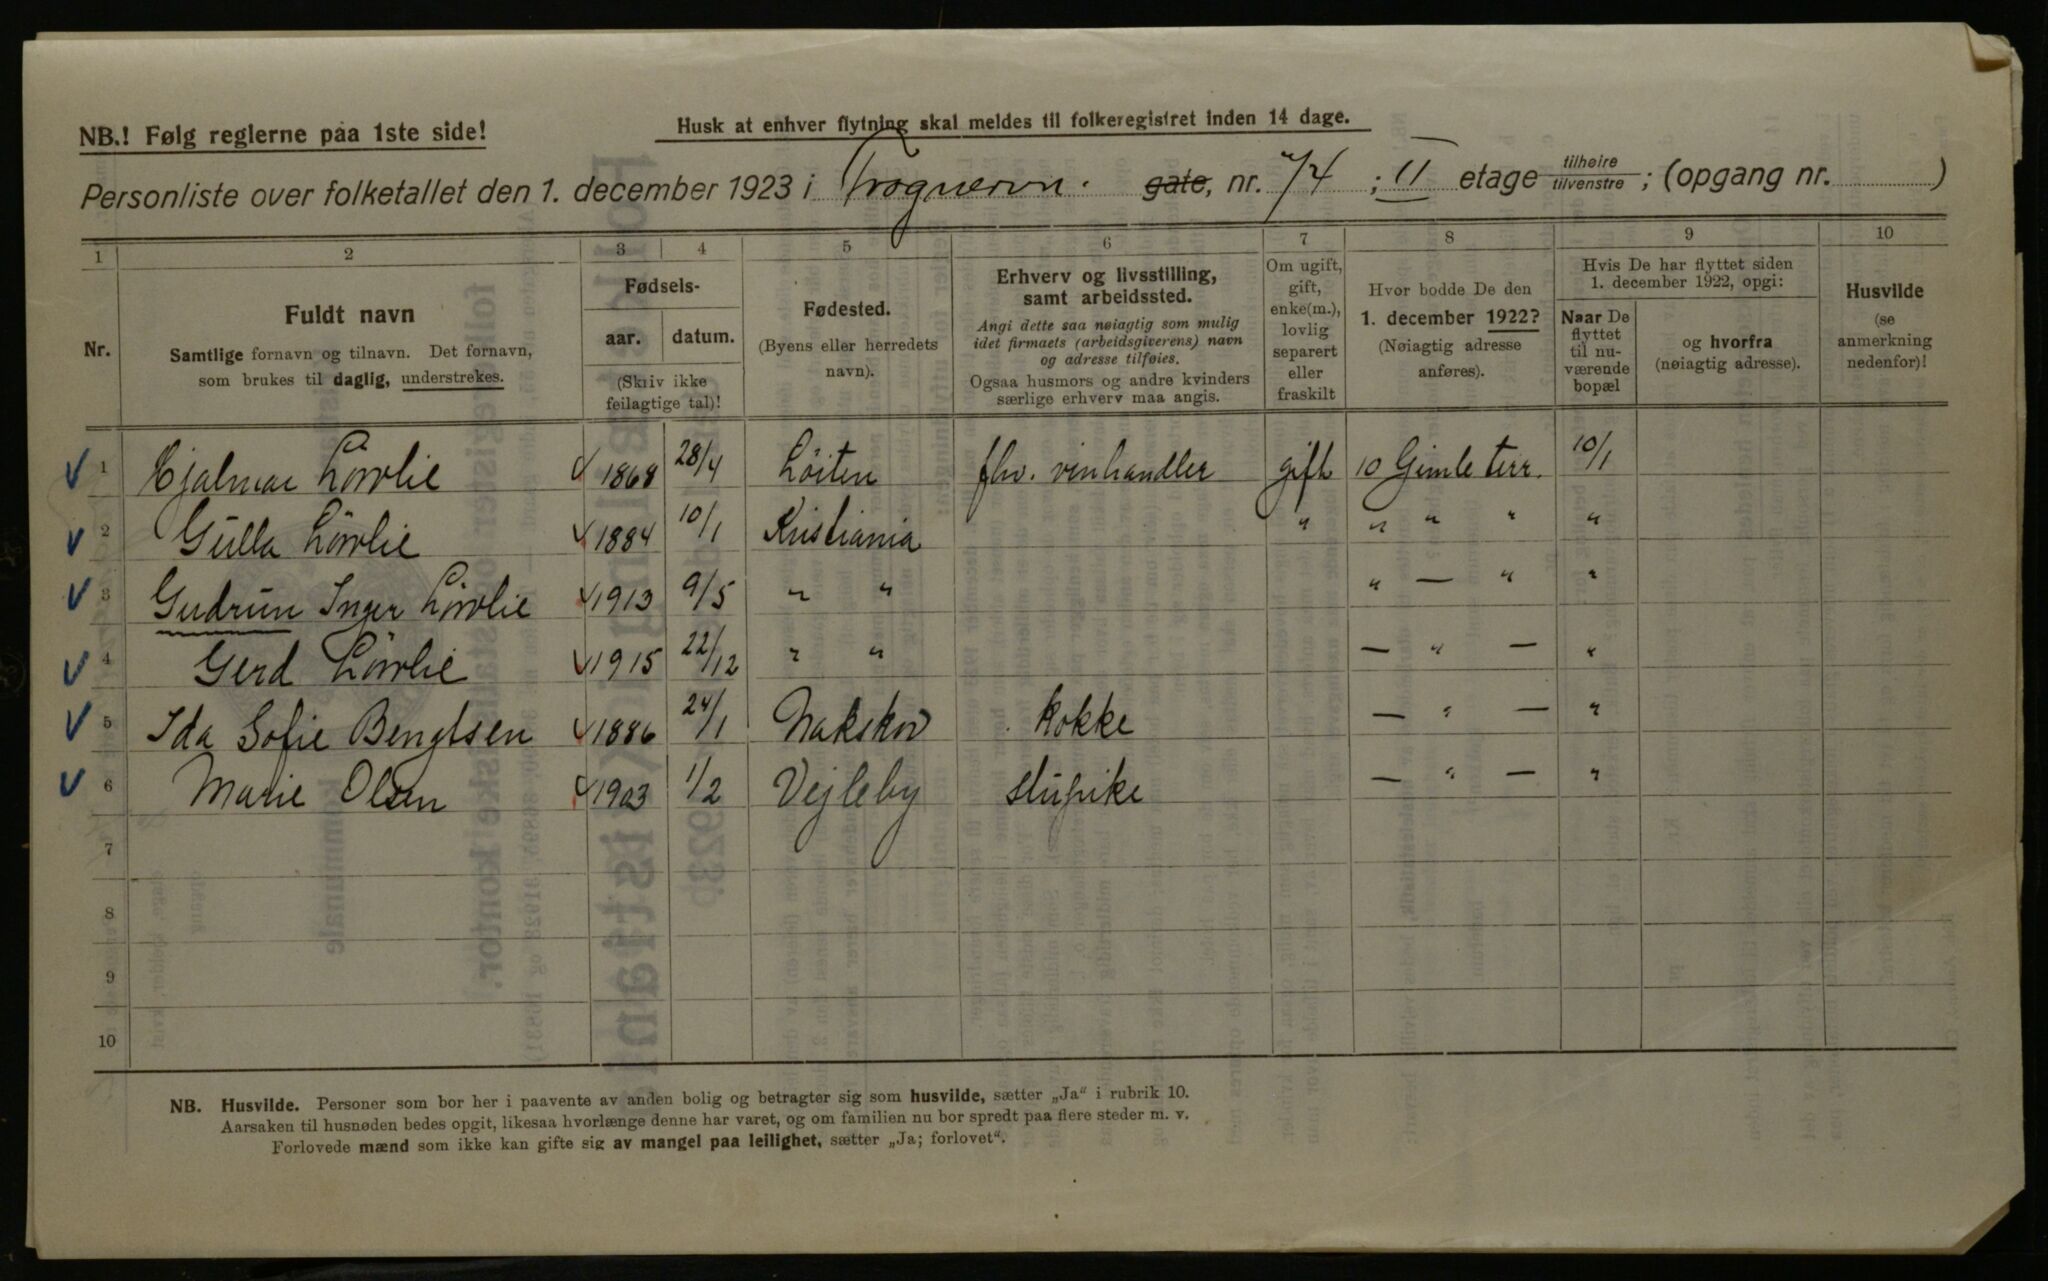 NB.! Følg reglerne paa 1ste side!
Husk at enhver flytning skal meldes til folkeregistret inden 14 dage.
Personliste over folketallet den 1. december 1923 i Frognervn. gate, nr. 74 ; II etage tilhøire tilvenstre ; (opgang nr. )
1 2 3 4 5 6 7 8 9 10
Nr.
Fuldt navn
Samtlige fornavn og tilnavn. Det fornavn,
som brukes til daglig, understrekes.
Fødsels-
aar. datum.
(Skriv ikke
feilagtige tal)!
Fødested.
(Byens eller herredets
navn).
Erhverv og livsstilling,
samt arbeidssted.
Angi dette saa nøiagtig som mulig
idet firmaets (arbeidsgiverens) navn
og adresse tilføies.
Ogsaa husmors og andre kvinders
særlige erhverv maa angis.
Om ugift,
gift,
enke(m.),
lovlig
separert
eller
fraskilt
Hvor bodde De den
1. december 1922?
(Nøiagtig adresse
anføres).
Hvis De har flyttet siden
1. december 1922, opgi:
Naar De
flyttet
til nu-
værende
bopæl
og hvorfra
(nøiagtig adresse).
Husvilde
(se
anmerkning
nedenfor)!
1 Hjalmar Lövlie 1868 28/4 Löiten fhv. vinhandler gift 10 Gimle terr. 10/1
2 Gulla Lövlie 1884 10/1 Kristiania " " " " "
3 Gudrun Inger Lövlie 1913 9/5 " " " — " "
4 Gerd Lövlie 1915 22/12 " " — " — "
5 Ida Sofie Bengtsen 1886 24/1 Nakskov kokke — " — "
6 Marie Olsen 1903 1/2 Vejleby stupike — " — "
7
8
9
10
NB. Husvilde. Personer som bor her i paavente av anden bolig og betragter sig som husvilde, sætter „Ja" i rubrik 10.
Aarsaken til husnøden bedes opgit, likesaa hvorlænge denne har varet, og om familien nu bor spredt paa flere steder m. v.
Forlovede mænd som ikke kan gifte sig av mangel paa leilighet, sætter „Ja; forlovet".